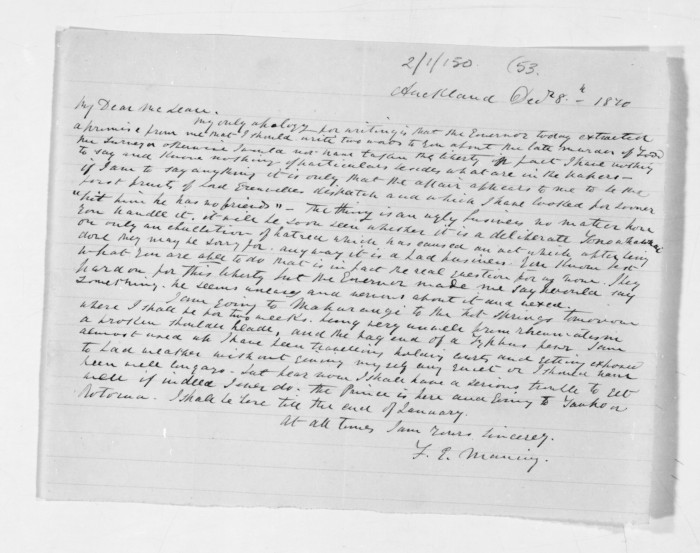 2/1/150 (53.
Auckland Decr 8th - 1870
My Dear McLean.
My only apology for writing is that the Governor today extracted
a promise from me that I should write two words to you about the late murder of Todd
the Surveyor otherwise I would not have taken the liberty. In fact I have nothing
to say and know nothing of particulars besides what are in the papers -
if I am to say anything it is only that the affair appears to me to be the
first fruits of Lord Granvilles despatch and which I have looked for sooner
"hit him he has no friends" - The thing is an ugly business no matter how
you handle it. it will be soon seen whether it is a deliberate
or only an ebullition of hatred which has caused an act which after being
done they may be sorry for. any way it is a bad business. You know best
what you are able to do that is in fact the real question for if none. I beg
pardon for this liberty but the Governor made me say I would say
something. he seems uneasy and nervous about it and vexed.
I am going to Mahurangi to the hot springs tomorrow
where I shall be for two weeks. being very unwell from rheumatism
a broken shoulder blade, and the fag end of a Typhus fever. I am
almost used up I have been travelling holding courts and getting exposed
to bad weather without giving myself any quiet or I should have
been well long ago. but fear now I shall have a serious trouble to get
well if indeed I ever do. the Prince is here and going to Taupo or
Rotorua. I shall be here till the end of January.
At all times I am Yours Sincerely.
F. E. Maning.